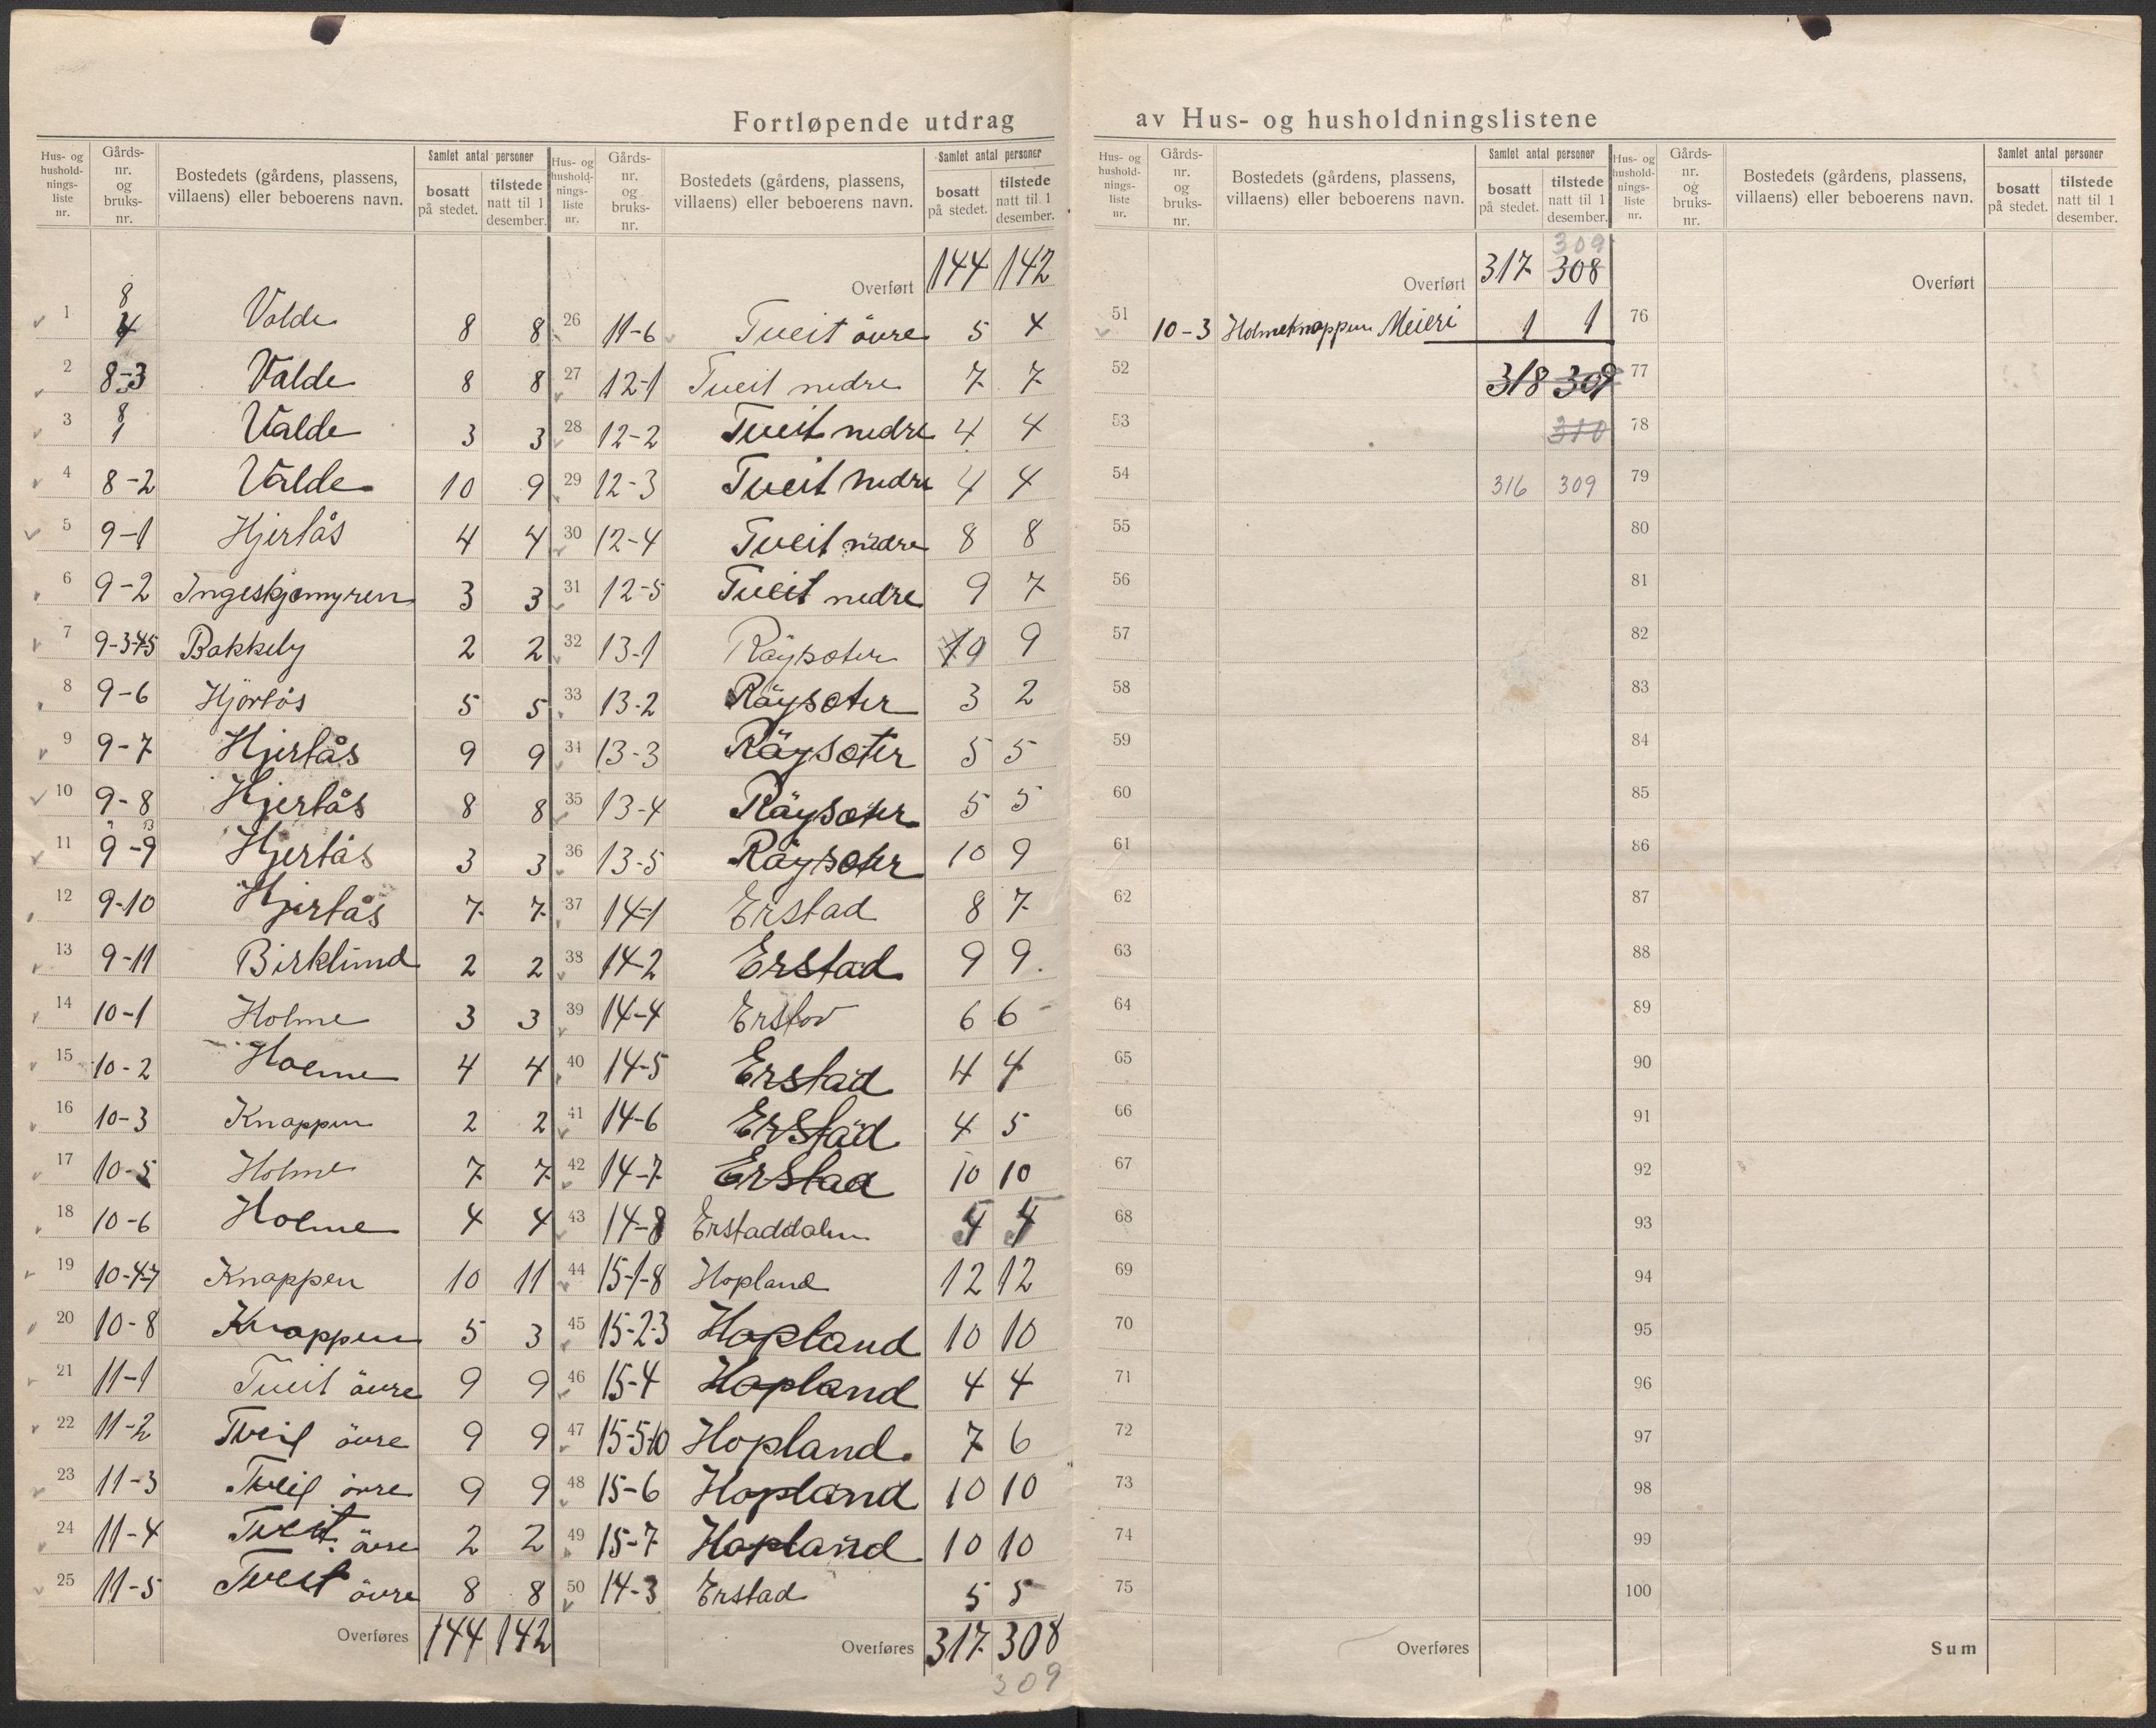 Fortløpende utdrag av Hus- og husholdningslistene
Hus- og husholdnings-liste nr. | Gårds-nr. og bruks-nr. | Bostedets (gårdens, plassens, villaens) eller beboerens navn. | Samlet antal personer: bosatt på stedet. | tilstede natt til 1 desember.
1 8 4 Valde 8 8
2 8-3 Valde 8 8
3 8 1 Valde 3 3
4 8-2 Valde 10 9
5 9-1 Hjertås 4 4
6 9-2 Ingeskjømyren 3 3
7 9-3-4-5 Bakkely 2 2
8 9-6 Hjørtås 5 5
9 9-7 Hjertås 9 9
10 9-8 Hjertås 8 8
11 9-9 Hjertås 3 3
12 9-10 Hjertås 7 7
13 9-11 Birklund 2 2
14 10-1 Holme 3 3
15 10-2 Holme 4 4
16 10-3 Knappen 2 2
17 10-5 Holme 7 7
18 10-6 Holme 4 4
19 10-4-7 Knappen 10 11
20 10-8 Knappen 5 3
21 11-1 Tveit övre 9 9
22 11-2 Tveit övre 9 9
23 11-3 Tveit övre 9 9
24 11-4 Tveit övre 2 2
25 11-5 Tveit övre 8 8
Overføres 144 142
Hus- og husholdnings-liste nr. | Gårds-nr. og bruks-nr. | Bostedets (gårdens, plassens, villaens) eller beboerens navn. | Samlet antal personer: bosatt på stedet. | tilstede natt til 1 desember.
Overført 144 142
26 11-6 Tveit övre 5 4
27 12-1 Tveit nedre 7 7
28 12-2 Tveit nedre 4 4
29 12-3 Tveit nedre 4 4
30 12-4 Tveit nedre 8 8
31 12-5 Tveit nedre 9 7
32 13-1 Röysæter 9 9
33 13-2 Röysæter 3 2
34 13-3 Röysæter 5 5
35 13-4 Röysæter 5 5
36 13-5 Röysæter 10 9
37 14-1 Erstad 8 7
38 14-2 Erstad 9 9
39 14-4 Erstad 6 6
40 14-5 Erstad 4 4
41 14-6 Erstad 4 5
42 14-7 Erstad 10 10
43 14-8 Erstaddalen
44 15-1-8 Hopland 12 12
45 15-2-3 Hopland 10 10
46 15-4 Hopland 4 4
47 15-5-10 Hopland 7 6
48 15-6 Hopland 10 10
49 15-7 Hopland 10 10
50 14-3 Erstad 5 5
Overføres 317 308
309
Hus- og husholdnings-liste nr. | Gårds-nr. og bruks-nr. | Bostedets (gårdens, plassens, villaens) eller beboerens navn. | Samlet antal personer: bosatt på stedet. | tilstede natt til 1 desember.
309
Overført 317 308
51 10-3 Holmeknappen Meieri 1 1
52 318 309
53 310
54 316 309
55
56
57
58
59
60
61
62
63
64
65
66
67
68
69
70
71
72
73
74
75
Overføres
Hus- og husholdnings-liste nr. | Gårds-nr. og bruks-nr. | Bostedets (gårdens, plassens, villaens) eller beboerens navn. | Samlet antal personer: bosatt på stedet. | tilstede natt til 1 desember.
Overført
76
77
78
79
80
81
82
83
84
85
86
87
88
89
90
91
92
93
94
95
96
97
98
99
100
Sum